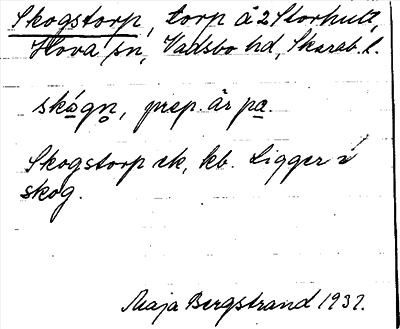 Skogstorp, torp å 2 Storhult,
Hova sn, Vadsbo hd, Skarab. l.
skógn̥, prep. är pa.
Skogstorp ek, kb. Ligger i
skog.
Maja Bergstrand 1932.